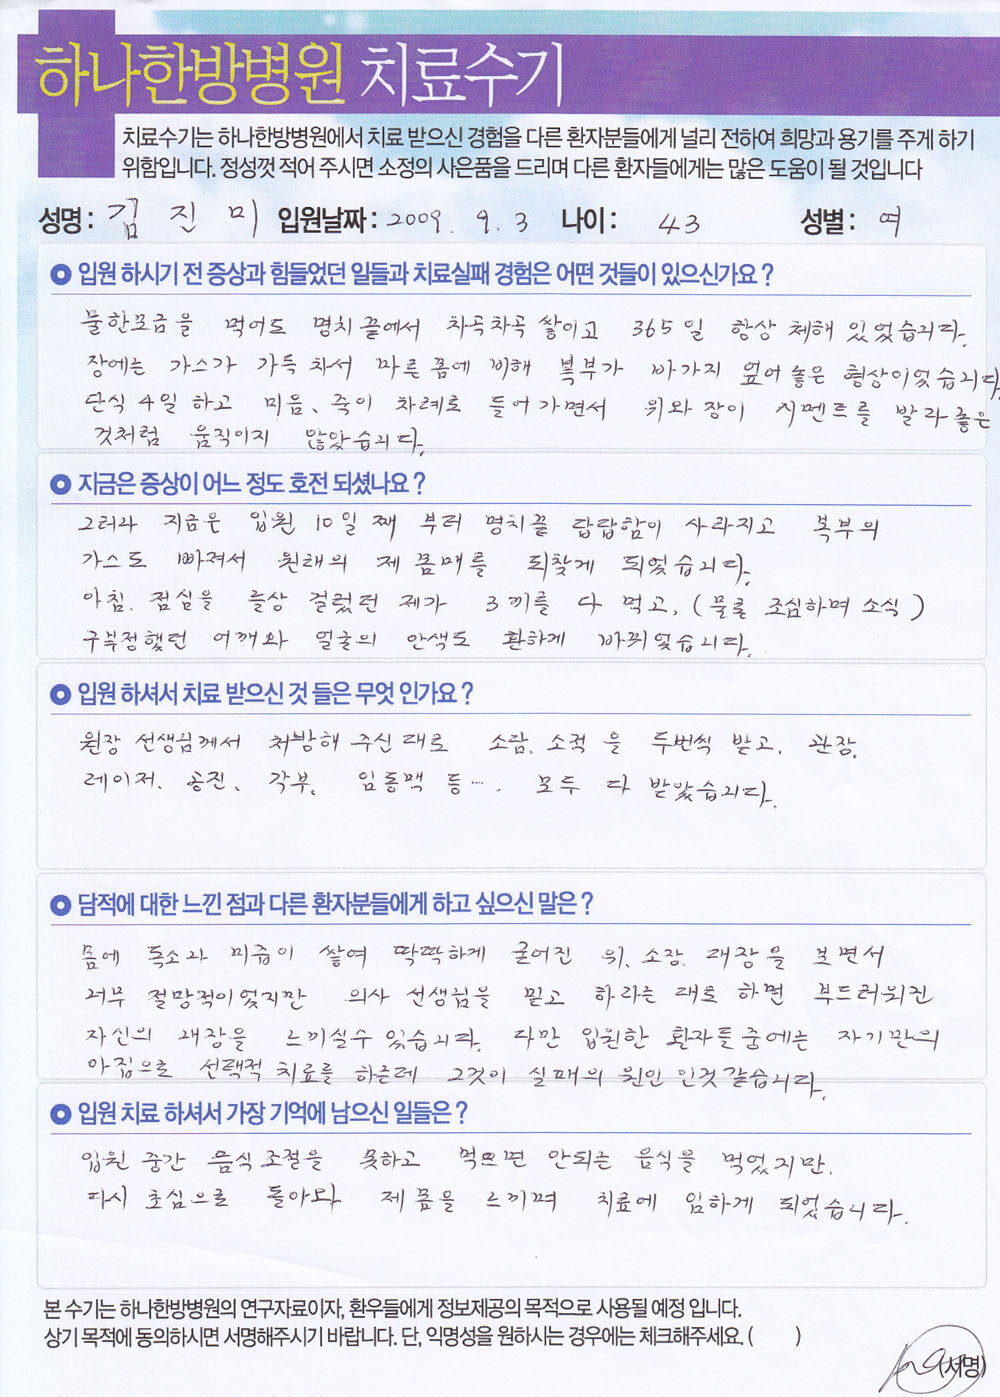 하나한방병원 치료수기
치료수기는 하나한방병원에서 치료 받으신 경험을 다른 환자분들에게 널리 전하여 희망과 용기를 주게 하기
위함입니다. 정성껏 적어 주시면 소정의 사은품을 드리며 다른 환자들에게는 많은 도움이 될 것입니다
성명 : 김 진 미 입원날짜 : 2009. 9. 3 나이 : 43 성별 : 여
입원 하시기 전 증상과 힘들었던 일들과 치료실패 경험은 어떤 것들이 있으신가요 ?
물한모금을 먹어도 명치 끝에서 차곡차곡 쌓이고 365일 항상 체해 있었습니다.
장에는 가스가 가득 차서 마른 몸에 비해 복부가 바가지 엎어 놓은 형상이었습니다
단식 4일 하고 미음、죽이 차례로 들어가면서 위와 장이 시멘트를 발라 놓은
것처럼 움직이지 않았습니다.
지금은 증상이 어느 정도 호전 되셨나요 ?
그러나 지금은 입원 10일 째 부터 명치끝 답답함이 사라지고 복부의
가스도 빠져서 원래의 제 몸매를 되찾게 되었습니다.
아침. 점심을 늘상 걸렀던 제가 3끼를 다 먹고, (물론 조심하며 소식)
구부정했던 어깨와 얼굴의 안색도 환하게 바뀌었습니다.
입원 하셔서 치료 받으신 것 들은 무엇 인가요 ?
원장 선생님께서 처방해 주신 대로 소담. 소적 을 두번씩 받고. 관장.
레이저. 공진. 각부. 임동맥 등…. 모두 다 받았습니다.
담적에 대한 느낀 점과 다른 환자분들에게 하고 싶으신 말은 ?
몸에 독소와 미즙이 쌓여 딱딱하게 굳어진 위. 소장. 대장을 보면서
너무 절망적이었지만 의사 선생님을 믿고 하라는 대로 하면 부드러워진
자신의 내장을 느끼실수 있습니다. 다만 입원한 환자들중에는 자기만의
아집으로 선택적 치료를 하는데 그것이 실패의 원인 인것같습니다.
입원 치료 하셔서 가장 기억에 남으신 일들은 ?
입원 중간 음식 조절을 못하고 먹으면 안되는 음식을 먹었지만.
다시 초심으로 돌아와 제 몸을 느끼며 치료에 임하게 되었습니다.
본 수기는 하나한방병원의 연구자료이자, 환우들에게 정보제공의 목적으로 사용될 예정 입니다.
상기 목적에 동의하시면 서명해주시기 바랍니다. 단, 익명성을 원하시는 경우에는 체크해주세요. ( )
(서명)